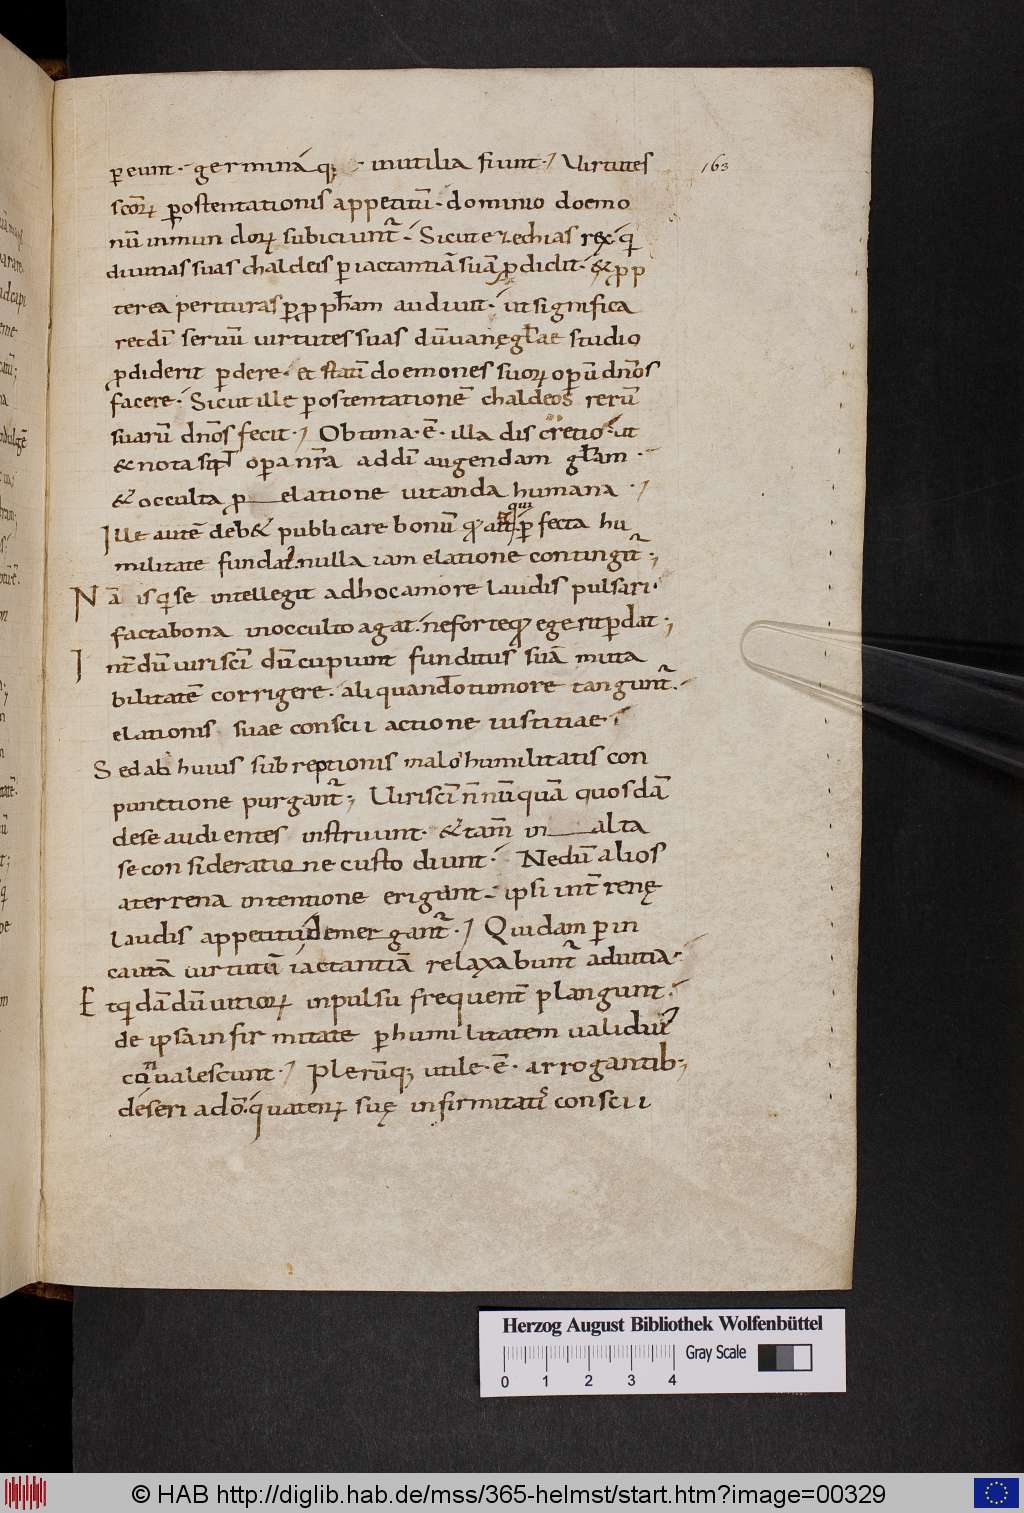 ꝑeunt· germinaq; inutilia fiunt· Uirtutes
163
scōrꝝ ꝑostentationis appetitū· dominio doemo
nū inmundorꝝ subiciunt᷑· Sicut ezechias rex qi
diuitias suas chaldeis ꝑ iactantiā suā ꝓdidit· & ꝓp
terea perituras ꝑ ꝓph̄am audiuit· ut significa
ret dm̄ seruū uirtutes suas dū uanę gl̄ae studio
ꝓdiderit ꝑdere· et statī doemones suorꝝ oꝑū dn̄os
facere· Sicut ille ꝑostentationē chaldeos rerū
suarū dn̄os fecit· Obtima· ē· illa discretio· ut
& nota oꝑa nr̄a ad dī augendam gl̄am·
& occulta ꝓ elatione uitanda humana·
Ille autē deb& publicare bonū qui ꝑfecta hu
militate fundat᷑· nulla iam elatione contingit᷑;
Nā is qi se intellegit ad hoc amore laudis pulsari·
facta bona in occulto agat· ne forte qđ egerit ꝑdat;
Int̄dū uiri scī dū cupiunt funditus suā muta
bilitatē corrigere· aliquando tumore tangunt᷑·
elationis suae conscii actione iustitiae·
Sed ab huius subreptionis malo humilitatis con
punctione purgant᷑; Uiri scī nn̄ūquā quosdā
de se audientes instruunt· & tam̄ in alta
se consideratione custodiunt· Ne dū alios
a terrena intentione erigant· ipsi int̄ renę
laudis appetitu demergant᷑· Quidam ꝑ in
cautā uirtutū iactantiā relaxabunt᷑ ad uitia·
Et qidā dū uitiorꝝ inpulsu frequent̄ plangunt·
de ipsa infirmitate ꝑ humilitatem ualidiu᷒
conualescunt· Plerūq; utile· ē· arrogantib;
deseri a dō· quatenꝝ suę infirmitati᷒ conscii
Herzog August Bibliothek Wolfenbüttel
Gray Scale
0 1 2 3 4
© HAB http://diglib.hab.de/mss/365-helmst/start.htm?image=00329